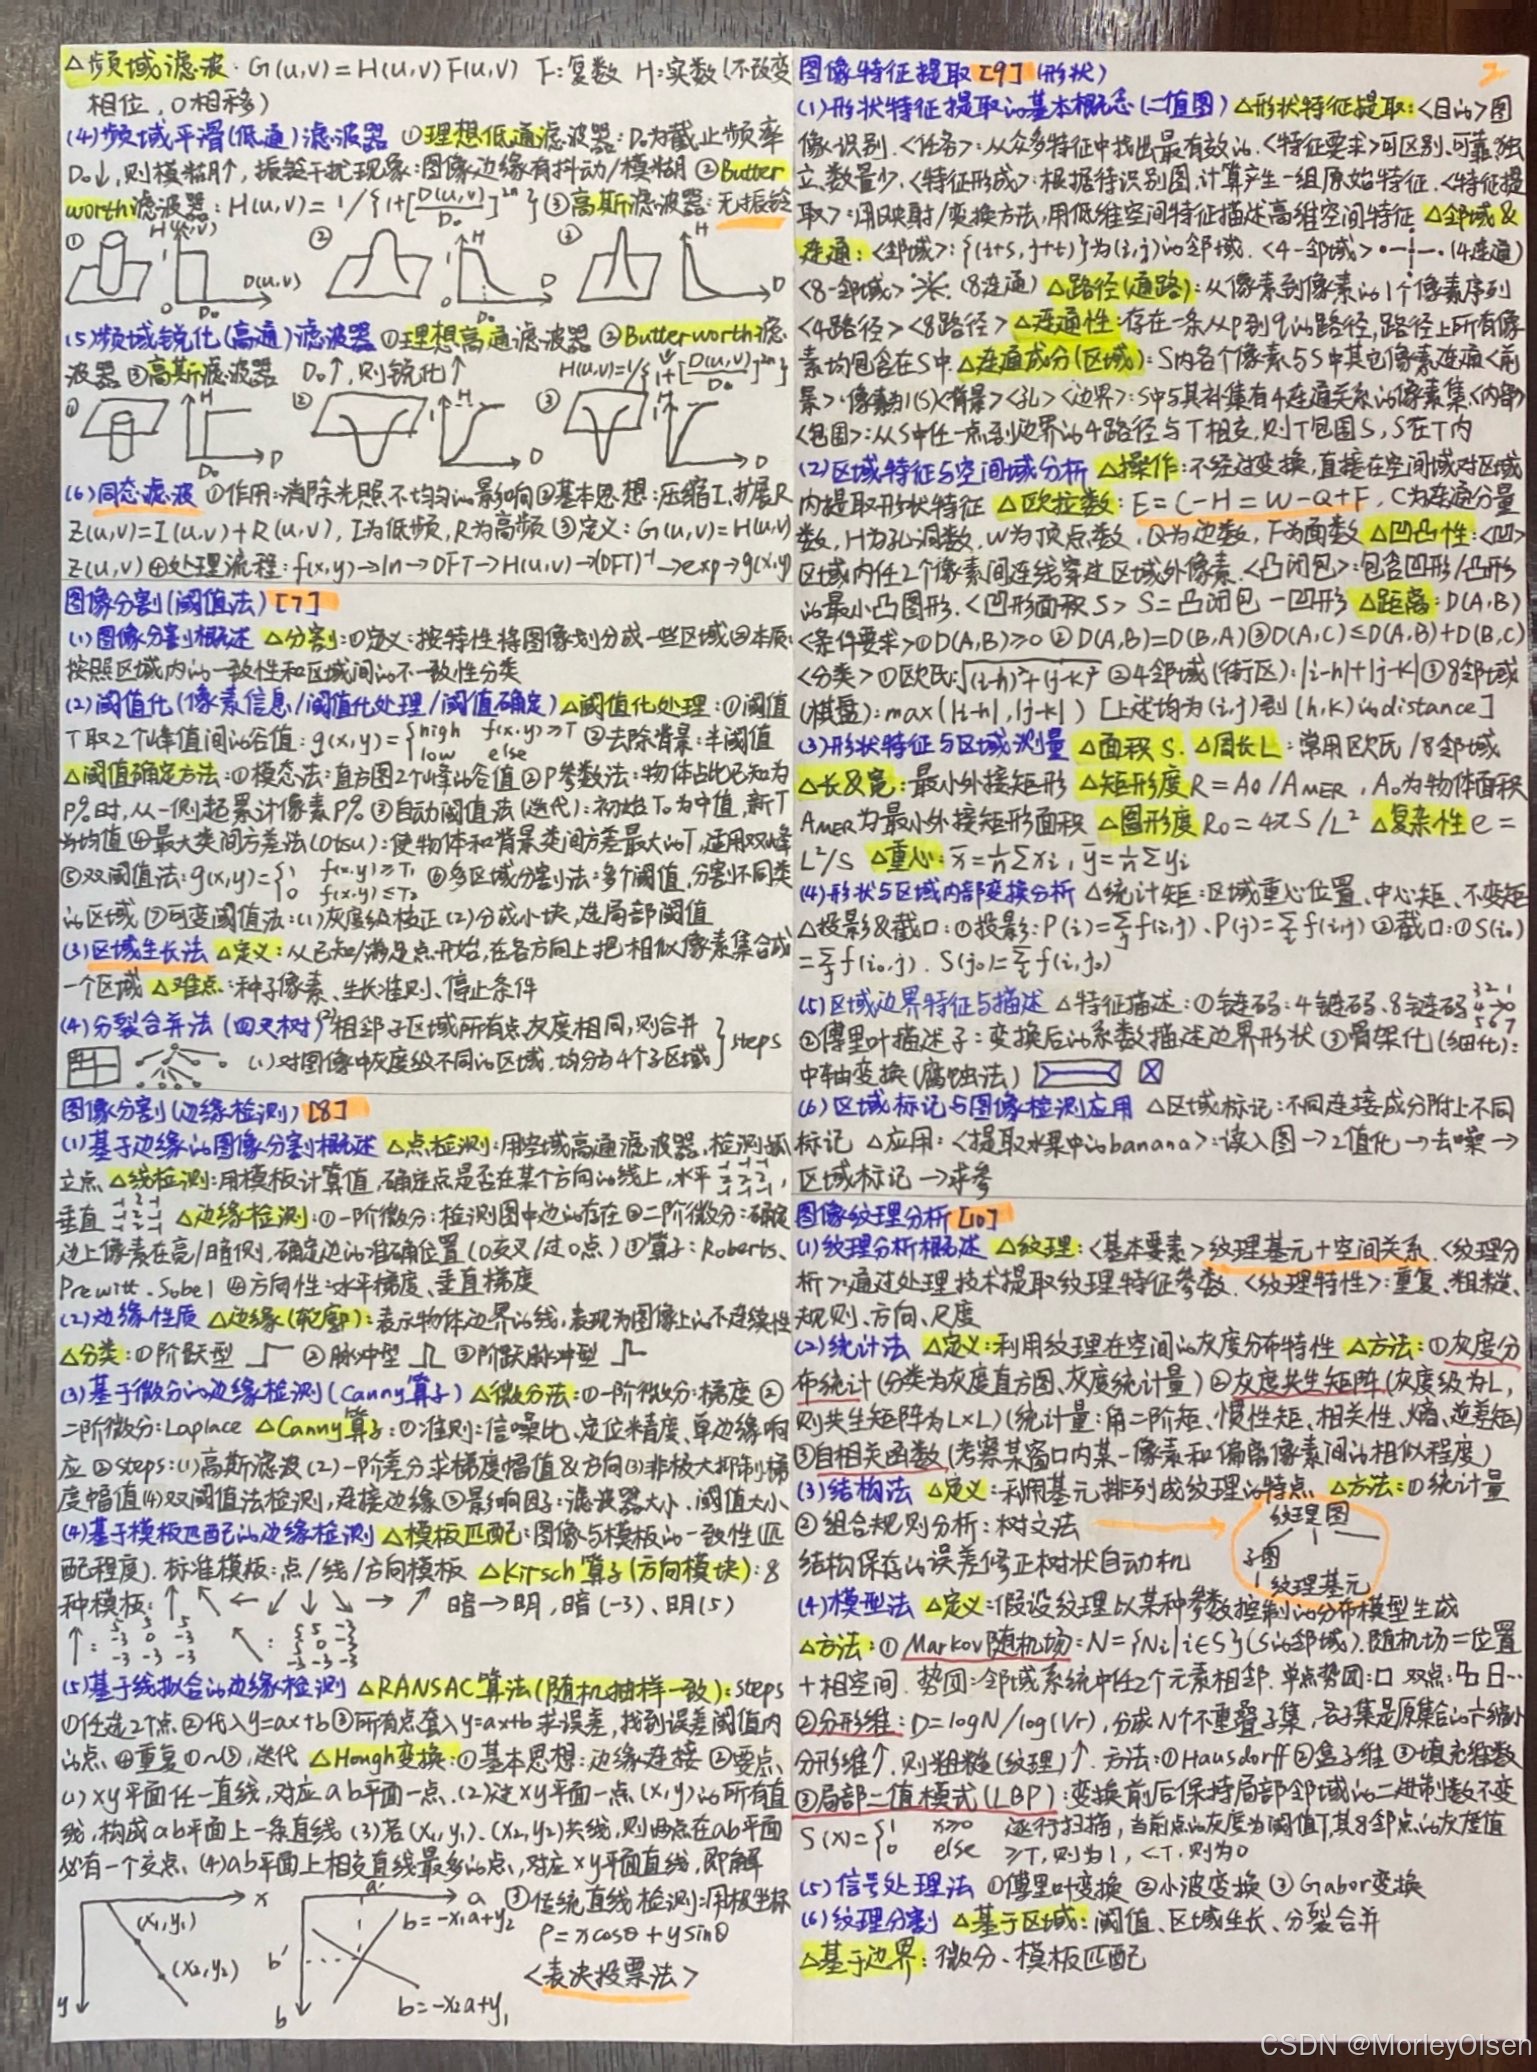 △频域滤波·G(u,v)=H(u,v)F(u,v) F:复数 H:实数(不改变
相位,0相移)
(4)频域平滑(低通)滤波器 ①理想低通滤波器:D₀为截止频率
D₀↓,则模糊↑,振铃干扰现象:图像边缘有抖动/模糊 ②Butter
worth滤波器:H(u,v)=1/{1+[D(u,v)/D₀]²ⁿ} ③高斯滤波器:无振铃
① H(u,v) 1 D(u,v) D₀ ② H 1 D D₀ ③ H D
(5)频域锐化(高通)滤波器 ①理想高通滤波器 ②Butterworth滤
波器 ③高斯滤波器 D₀↑,则锐化↑ H(u,v)=1/{1+[D(u,v)/D₀]²ⁿ}
① H D₀ D ② 1 H D ③ 1 H D
(6)同态滤波 ①作用:消除光照不均匀的影响 ②基本思想:压缩I,扩展R
Z(u,v)=I(u,v)+R(u,v),I为低频,R为高频 ③定义:G(u,v)=H(u,v)
Z(u,v) ④处理流程:f(x,y)→ln→DFT→H(u,v)→(DFT)⁻¹→exp→g(x,y)
图像分割(阈值法)[7]
(1)图像分割概述 △分割:①定义:按特性将图像划分成一些区域②本质:
按照区域内的一致性和区域间的不一致性分类
(2)阈值化(像素信息/阈值化处理/阈值确定)△阈值化处理:①阈值
T取2个峰值间的谷值:g(x,y)={high f(x,y)≥T ②去除背景:半阈值
low else
△阈值确定方法:①模态法:直方图2个峰的谷值 ②P参数法:物体占比已知为
P%时,从一侧起累计像素P% ③自动阈值法(迭代):初始T₀为中值,新T
为均值④最大类间方差法(Otsu):使物体和背景类间方差最大的T,适用双峰
⑤双阈值法:g(x,y)={1 f(x,y)≥T₁ ⑥多区域分割法:多个阈值,分割不同类
0 f(x,y)≤T₂
的区域 ⑦可变阈值法:(1)灰度级校正(2)分成小块,选局部阈值
(3)区域生长法 △定义:从已知/满足点开始,在各方向上把相似像素集合成
一个区域 △难点:种子像素、生长准则、停止条件
(4)分裂合并法(四叉树)(2)相邻子区域所有点灰度相同,则合并
(1)对图像中灰度级不同的区域,均分为4个子区域 }steps
图像分割(边缘检测)[8]
(1)基于边缘的图像分割概述 △点检测:用空域高通滤波器,检测孤
立点 △线检测:用模板计算值,确定点是否在某个方向的线上,水平 -1-1-1 2 2 2 -1-1-1,
垂直 -1 2 -1 -1 2 -1 -1 2 -1 △边缘检测:①一阶微分:检测图中边的存在 ②二阶微分:确定
边上像素在亮/暗侧,确定边的准确位置(0交叉/过0点) ③算子:Roberts、
Prewitt、Sobel ④方向性:水平梯度、垂直梯度
(2)边缘性质 △边缘(轮廓):表示物体边界的线,表现为图像上的不连续性
△分类:①阶跃型 ②脉冲型 ③阶跃脉冲型
(3)基于微分的边缘检测(Canny算子)△微分法:①一阶微分:梯度②
二阶微分:Laplace △Canny算子:①准则:信噪比、定位精度、单边缘响
应 ②steps:(1)高斯滤波(2)一阶差分求梯度幅值&方向(3)非极大抑制梯
度幅值(4)双阈值法检测,连接边缘③影响因子:滤波器大小、阈值大小
(4)基于模板匹配的边缘检测 △模板匹配:图像与模板的一致性(匹
配程度).标准模板:点/线/方向模板 △Kirsch算子(方向模块):8
种模板:↑ ↖ ← ↙ ↓ ↘ → ↗ 暗→明,暗(-3)、明(5)
↑: 5 5 5 -3 0 -3 -3 -3 -3 ↖: 5 5 -3 5 0 -3 -3 -3 -3
(5)基于线拟合的边缘检测 △RANSAC算法(随机抽样一致):steps
①任选2个点②代入y=ax+b③所有点套入y=ax+b求误差,找到误差阈值内
的点 ④重复①~③,迭代 △Hough变换:①基本思想:边缘连接 ②要点
(1)xy平面任一直线,对应ab平面一点.(2)过xy平面一点(x,y)的所有直
线,构成ab平面上一条直线(3)若(x₁,y₁)、(x₂,y₂)共线,则两点在ab平面
必有一个交点、(4)ab平面上相交直线最多的点,对应xy平面直线,即解
x a' a ③传统直线检测:用极坐标
(x₁,y₁) b=-x₁a+y₂ ρ=xcosθ+ysinθ
(x₂,y₂) b' <表决投票法>
y b b=-x₂a+y₁
图像特征提取[9](形状) 2
(1)形状特征提取的基本概念(二值图)△形状特征提取:<目的>图
像识别.<任务>:从众多特征中找出最有效的.<特征要求>可区别、可靠、独
立、数量少.<特征形成>:根据待识别图,计算产生一组原始特征.<特征提
取>:用映射/变换方法,用低维空间特征描述高维空间特征 △邻域&
连通:<邻域>:{(i+s,j+t)}为(i,j)的邻域.<4-邻域> (4连通)
<8-邻域> (8连通) △路径(通路):从像素到像素的1个像素序列
<4路径><8路径>△连通性:存在一条从p到q的路径,路径上所有像
素均包含在S中 △连通成分(区域):S内各个像素与S中其它像素连通<前
景>:像素为1(S)<背景><孔><边界>:S中与其补集有4连通关系的像素集<内部>
<包围>:从S中任一点到边界的4路径与T相交,则T包围S,S在T内
(2)区域特征与空间域分析 △操作:不经过变换,直接在空间域对区域
内提取形状特征 △欧拉数:E=C-H=W-Q+F,C为连通分量
数,H为孔洞数,W为顶点数,Q为边数,F为面数 △凹凸性:<凹>
区域内任2个像素间连线穿过区域外像素.<凸闭包>:包含凹形/凸形
的最小凸图形.<凹形面积S> S=凸闭包-凹形 △距离:D(A,B)
<条件要求>①D(A,B)≥0 ②D(A,B)=D(B,A)③D(A,C)≤D(A,B)+D(B,C)
<分类>①欧氏:√(i-h)²+(j-k)² ②4邻域(街区):|i-h|+|j-k|③8邻域
(棋盘):max(|i-h|,|j-k|) [上述均为(i,j)到(h,k)的distance]
(3)形状特征与区域测量 △面积S.△周长L:常用欧氏/8邻域
△长&宽:最小外接矩形 △矩形度R=A₀/AMER,A₀为物体面积
AMER为最小外接矩形面积 △圆形度R₀=4πS/L² △复杂性e=
L²/S △重心:x̄=1/n Σxi,ȳ=1/n Σyi
(4)形状与区域内部变换分析 △统计矩:区域重心位置、中心矩、不变矩
△投影&截口:①投影:P(i)=Σf(i,j)、P(j)=Σf(i,j)②截口:①S(i₀)
=Σf(i₀,j).S(j₀)=Σf(i,j₀)
(5)区域边界特征与描述 △特征描述:①链码:4链码、8链码 3 2 1 4 0 5 6 7
②傅里叶描述子:变换后的系数描述边界形状 ③骨架化(细化):
中轴变换(腐蚀法)
(6)区域标记与图像检测应用 △区域标记:不同连接成分附上不同
标记 △应用:<提取水果中的banana>:读入图→2值化→去噪→
区域标记→求参
图像纹理分析[10]
(1)纹理分析概述 △纹理:<基本要素>纹理基元+空间关系.<纹理分
析>:通过处理技术提取纹理特征参数.<纹理特性>:重复、粗糙、
规则、方向、尺度
(2)统计法 △定义:利用纹理在空间的灰度分布特性 △方法:①灰度分
布统计(分类为灰度直方图、灰度统计量)②灰度共生矩阵(灰度级为L,
则共生矩阵为L×L)(统计量:角二阶矩、惯性矩、相关性、熵、逆差矩)
③自相关函数(考察某窗口内某一像素和偏离像素间的相似程度)
(3)结构法 △定义:利用基元排列成纹理的特点 △方法:①统计量
②组合规则分析:树文法 → 纹理图
结构保存的误差修正树状自动机 子图
纹理基元
(4)模型法 △定义:假设纹理以某种参数控制的分布模型生成
△方法:①Markov随机场:N={Ni|i∈S}(S的邻域).随机场=位置
+相空间.势团:邻域系统中任2个元素相邻.单点势团:□ 双点:
②分形维:D=logN/log(1/r),分成N个不重叠子集,各子集是原集合的r缩小
分形维↑,则粗糙(纹理)↑.方法:①Hausdorff②盒子维③填充维数
③局部二值模式(LBP):变换前后保持局部邻域的二进制数不变
S(x)={1 x≥0 逐行扫描,当前点的灰度为阈值T,其8邻点的灰度值
0 else ≥T,则为1,<T,则为0
(5)信号处理法 ①傅里叶变换 ②小波变换 ③Gabor变换
(6)纹理分割 △基于区域:阈值、区域生长、分裂合并
△基于边界:微分、模板匹配
CSDN @MorleyOlsen